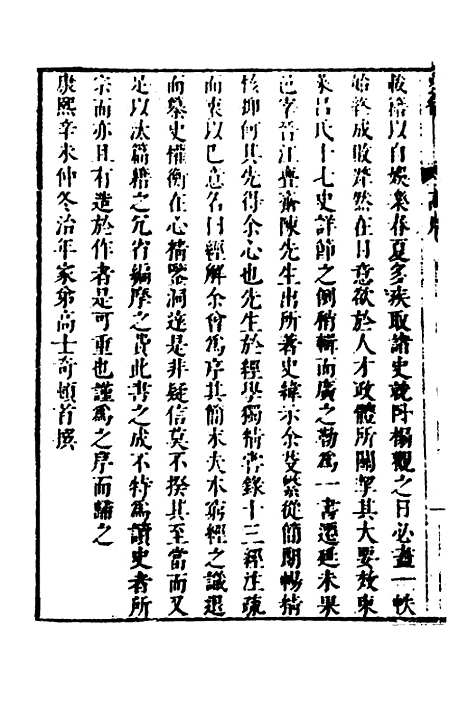 載籍以自娛某春夏多疾取諸史說臥榻觀之日必盡一帙
始終成敗犖然在目意欲於人才政體所關挈其大要效東
萊呂氏十七史詳節之例稍輯而廣之勒為一書遷延未果
邑宰晉江齊齋陳先生出所著史緯示余芟繁從簡開暢精
核抑何其先得余心也先生於經學獨精嘗錄十三經注疏
而衷以己意名曰經解余曾為序其簡末夫本窮經之識退
而纂史權衡在心精鑒洞達是非疑信莫不揆其至當而又
足以汰篇籍之冗省編摩之費此書之成不特為讀史者所
宗而亦且有造於作者是可重也謹為之序而歸之
康熙辛未仲冬治年家弟高士奇頓首撰